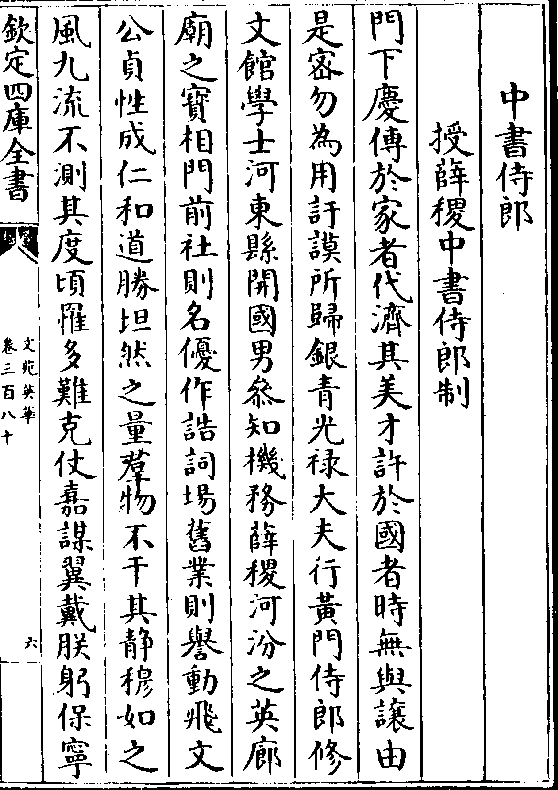 中書侍郎
授薛稷中書侍郎制
門下慶傳於家者代濟其美才許於國者時無與讓由
是密勿為用訏謨所歸銀青光禄大夫行黄門侍郎修
文館學士河東縣開國男叅知機務薛稷河汾之英廊
廟之寳相門前社則名優作誥詞塲舊業則譽動飛文
公貞性成仁和道勝坦然之量羣物不干其静穆如之
風九流不測其度頃罹多難克仗嘉謀翼戴朕躬保寧
欽定四庫全書
文苑英華
卷三百八十
六